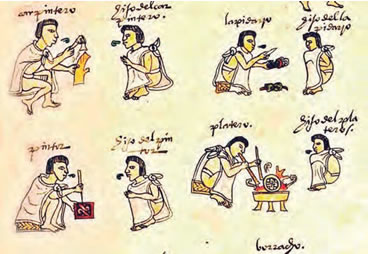 carpintero
hijo del car
pintero
lapidario
hijo del la
pidario
pintor
hijo del pin
tor
platero.
hijo del pla
tero.
borracho.